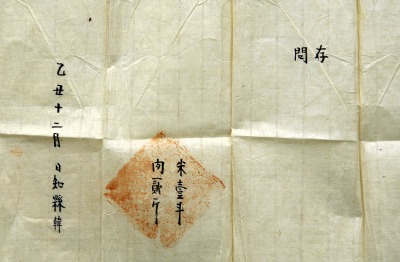 存問
米壹斗
肉貳斤
乙丑十二月 日